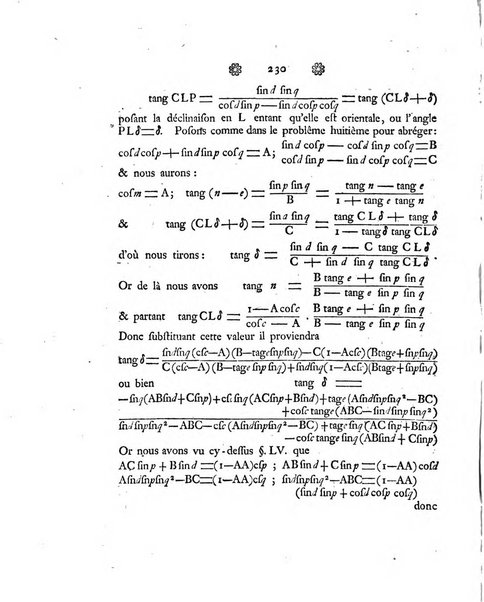 230
tang CLP = ſin d ſin q / (coſ d ſin p — ſin d coſ p coſ q) = tang (CLδ + δ)
poſant la déclinaiſon en L entant qu'elle eſt orientale, ou l'angle
PLδ = δ. Poſons comme dans le problème huitième pour abréger:
coſ d coſ p + ſin d ſin p coſ q = A; ſin d coſ p — coſ d ſin p coſ q = B
coſ d ſin p — ſin d coſ p coſ q = C
& nous aurons:
coſ m = A; tang (n — e) = ſin p ſin q / B = (tang n — tang e) / (1 + tang e tang n)
& tang (CLδ + δ) = ſin d ſin q / C = (tang CLδ + tang δ) / (1 — tang δ tang CLδ)
d'où nous tirons: tang δ = (ſin d ſin q — C tang CLδ) / (C + ſin d ſin q tang CLδ)
Or de là nous avons tang n = (B tang e + ſin p ſin q) / (B — tang e ſin p ſin q)
& partant tang CLδ = (1 — A coſ c) / (coſ c — A) . (B tang e + ſin p ſin q) / (B — tang e ſin p ſin q)
Donc ſubſtituant cette valeur il proviendra
tang δ = (ſin d ſin q (cſ c — A) (B — tag e ſin p ſin q) — C (1 — A cſ c) (B tag e + ſin p ſin q)) / (C (cſ c — A) (B — tag e ſin p ſin q) + ſin d ſin q (1 — A cſ c) (B tag e + ſin p ſin q))
ou bien tang δ =
—ſin q (AB ſin d + C ſin p) + cſ c ſin q (AC ſin p + B ſin d) + tag e (A ſin d ſin p ſin q² — BC)
+ coſ c tang e (ABC — ſin d ſin p ſin q²)
ſin d ſin p ſin q² — ABC — cſ c (A ſin d ſin p ſin q² — BC) + tag e ſin q (AC ſin p + B ſin d)
— coſ c tang e ſin q (AB ſin d + C ſin p)
Or nous avons vu cy-deſſus §. LV. que
AC ſin p + B ſin d = (1 — AA) cſ p ; AB ſin d + C ſin p = (1 — AA) coſ d
A ſin d ſin p ſin q² — BC = (1 — AA) ; ſin d ſin p ſin q² — ABC = (1 — AA)
(ſin d ſin p + coſ d coſ p coſ q)
donc